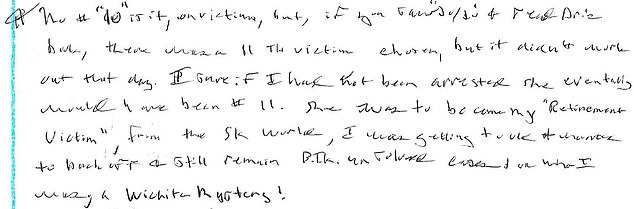 No # "10" is it, on victims, but, if you
book, there was a 11 Th victim chosen, but it didn't work
out that day. I sure if I had not been arrested she eventually
would have been # 11. She was to become my "Retirement
Victim", from the SK world, I was getting to old &
to back off & still remain B.T.K. unsolved cases & on who I
was, a Wichita Mystery!